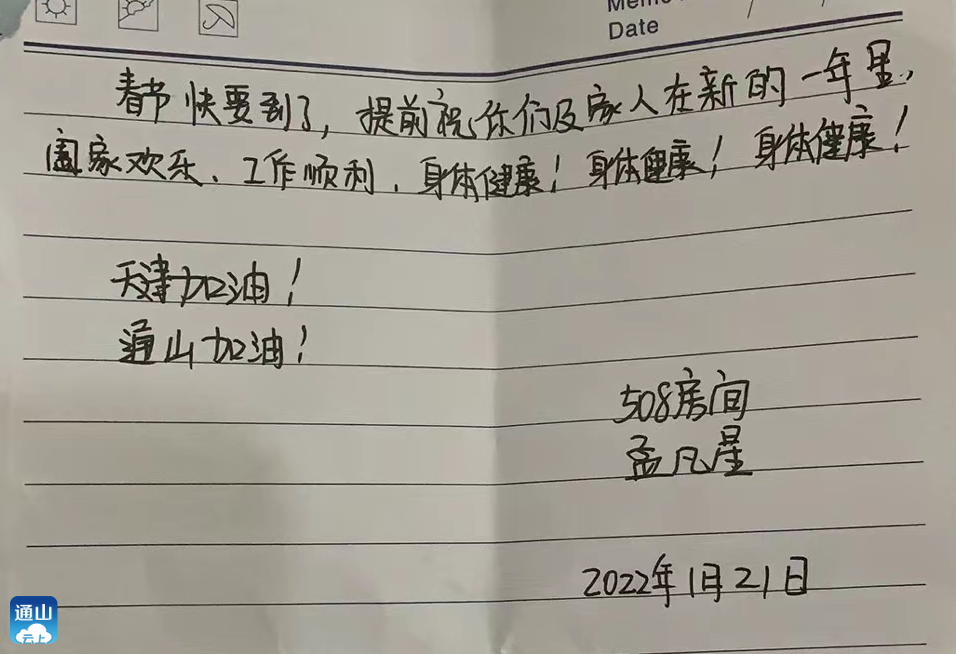 Memo
Date / /
春节快要到了,提前祝你们及家人在新的一年里,
阖家欢乐、工作顺利、身体健康!身体健康!身体健康!
天津加油!
通山加油!
508房间
孟凡星
2022年1月21日
通山
云上